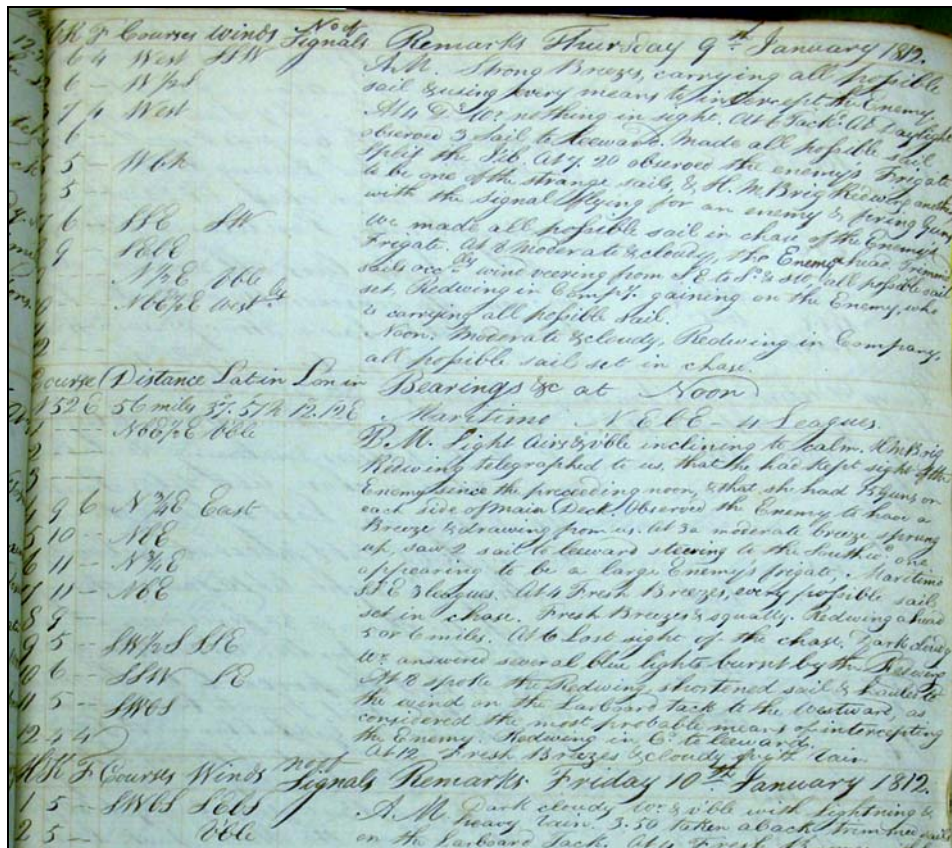 H K F Courses Winds No of Signals Remarks Thursday 9th January 1812.
6 4 West SSW A.M. Strong Breezes, carrying all possible
6 - W½S sail & using every means to intercept the Enemy.
7 4 West At 4 Do Wr nothing in sight. At 6 Tackd. At Daylight
6 - observed 3 sail to leeward. Made all possible sail
5 - WbN Split the Jib. At 7.20 observed the enemy's Frigate
5 - to be one of the strange sails, & H. M. Brig Redwing another
with the signal flying for an enemy & firing Guns
6 - SSE SW We made all possible sail in chase of the Enemy's
9 - SEbE Frigate. At 8 moderate & cloudy, the Enemy ahead, trimmed
N½E Vble sails accly wind veering from SE to So & SW, all possible sail
NbE½E Westly set, Redwing in Compy. gaining on the Enemy, who
is carrying all possible sail.
Noon. Moderate & cloudy, Redwing in Company,
all possible sail set in chase.
Course Distance Lat in Lon in Bearings &c at Noon
N 52 E 56 miles 37.57N 12.12E Maritimo NEbE - 4 Leagues.
1 - - NbE½E Vble P.M. Light Airs & vble inclining to calm. H M Brig
2 Redwing telegraphed to us, that she had kept sight of the
3 Enemy since the preceeding noon, & that she had 15 Guns on
4 9 6 N¾E East each side of Main Deck. Observed the Enemy to have a
5 10 - NbE Breeze & drawing from us. At 3 a moderate breeze sprung
6 11 - N¾E up, saw 2 sail to leeward steering to the Southwd one
appearing to be a large Enemy's frigate, Maritimo
7 11 - NbE SSE 3 leagues. At 4 Fresh Breezes, every possible sail
8 9 - set in chase. Fresh Breezes & squally. Redwing ahead
9 5 - SW½S SSE 5 or 6 miles. At 6 Lost sight of the chase. Dark cloudy
10 6 - SSW SE Wr answered several blue lights burnt by the Redwing
At 8 spoke the Redwing, shortened sail & hauled to
11 5 - SWbS the wind on the Larboard tack to the Westward, as
considered the most probable means of intercepting
12 4 4 the Enemy. Redwing in Co. to leeward.
At 12 Fresh Breezes & cloudy with rain.
H K F Courses Winds No of Signals Remarks Friday 10th January 1812.
1 5 - SWbS SEbS A.M. Dark cloudy Wr & vble with lightning &
2 5 - Vble heavy rain. 3.50 taken aback, trimmed sails
on the Larboard Tack. At 4 Fresh